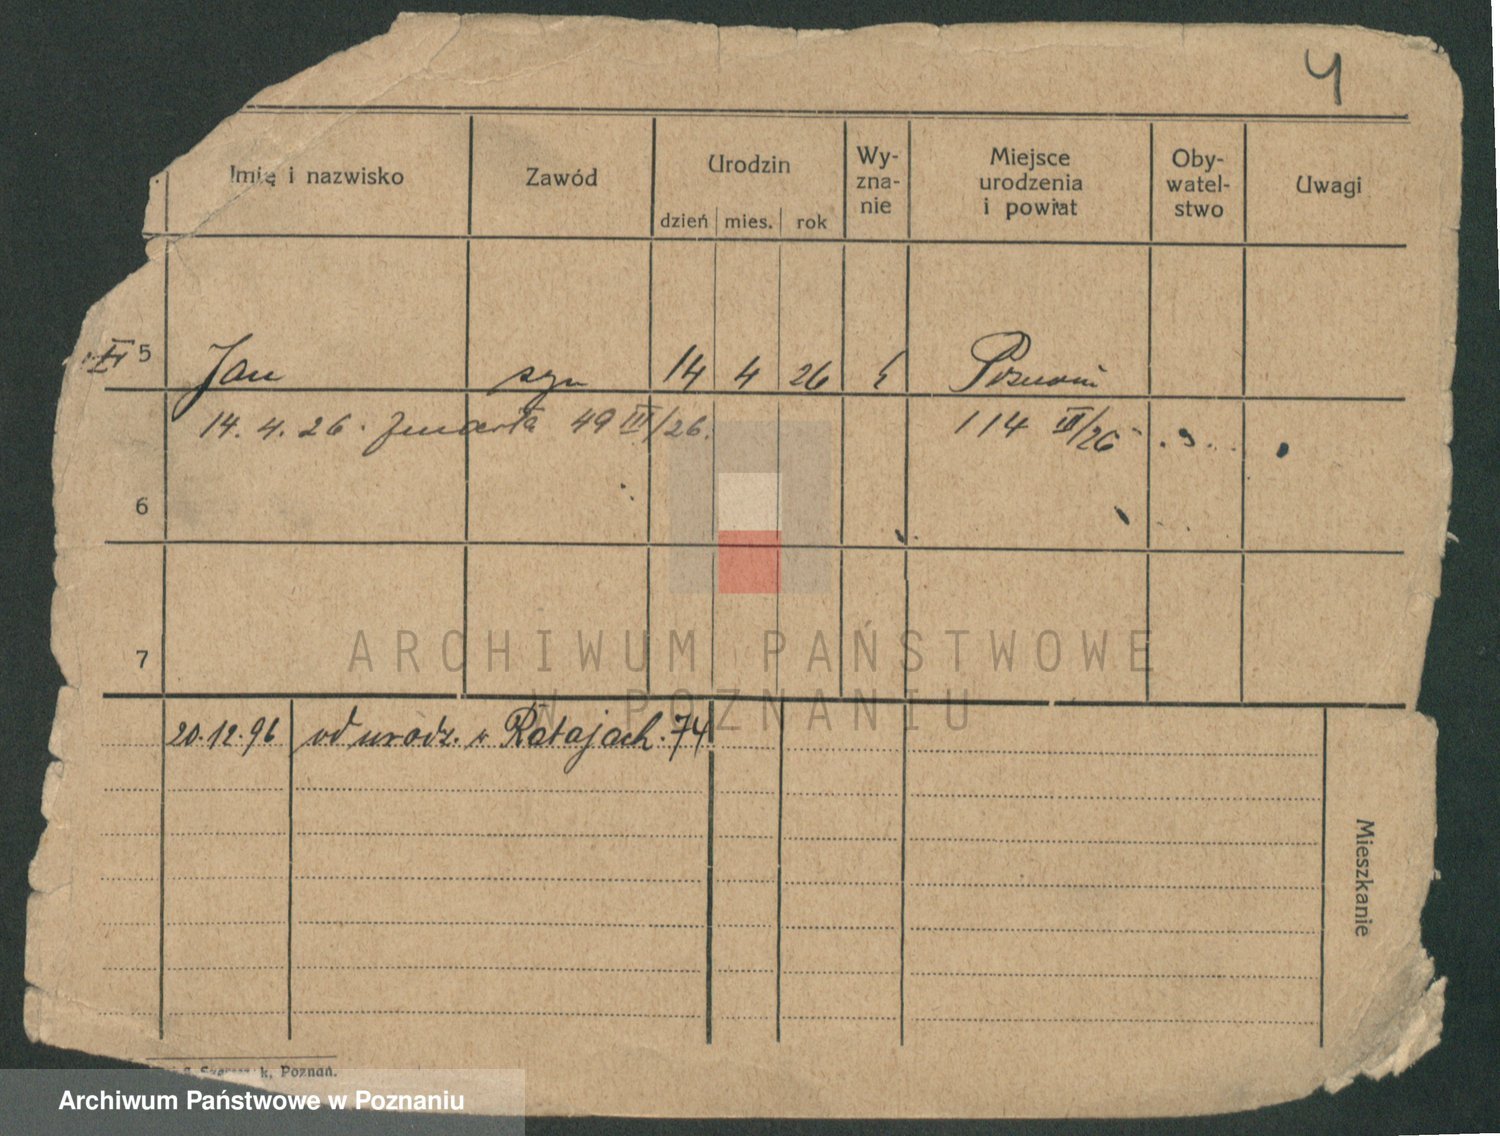 4
Imię i nazwisko Zawód Urodzin Wy-zna-nie Miejsce urodzenia i powiat Oby-watel-stwo Uwagi
dzień mies. rok
5 Jan syn 14 4 26 Poznań
14. 4. 26. zmarła 49 III/26. 114 III/26
6
7
ARCHIWUM PAŃSTWOWE
W POZNANIU
20.12.96 od urodz. w Ratajach. 74
Mieszkanie
k, Poznań.
Archiwum Państwowe w Poznaniu